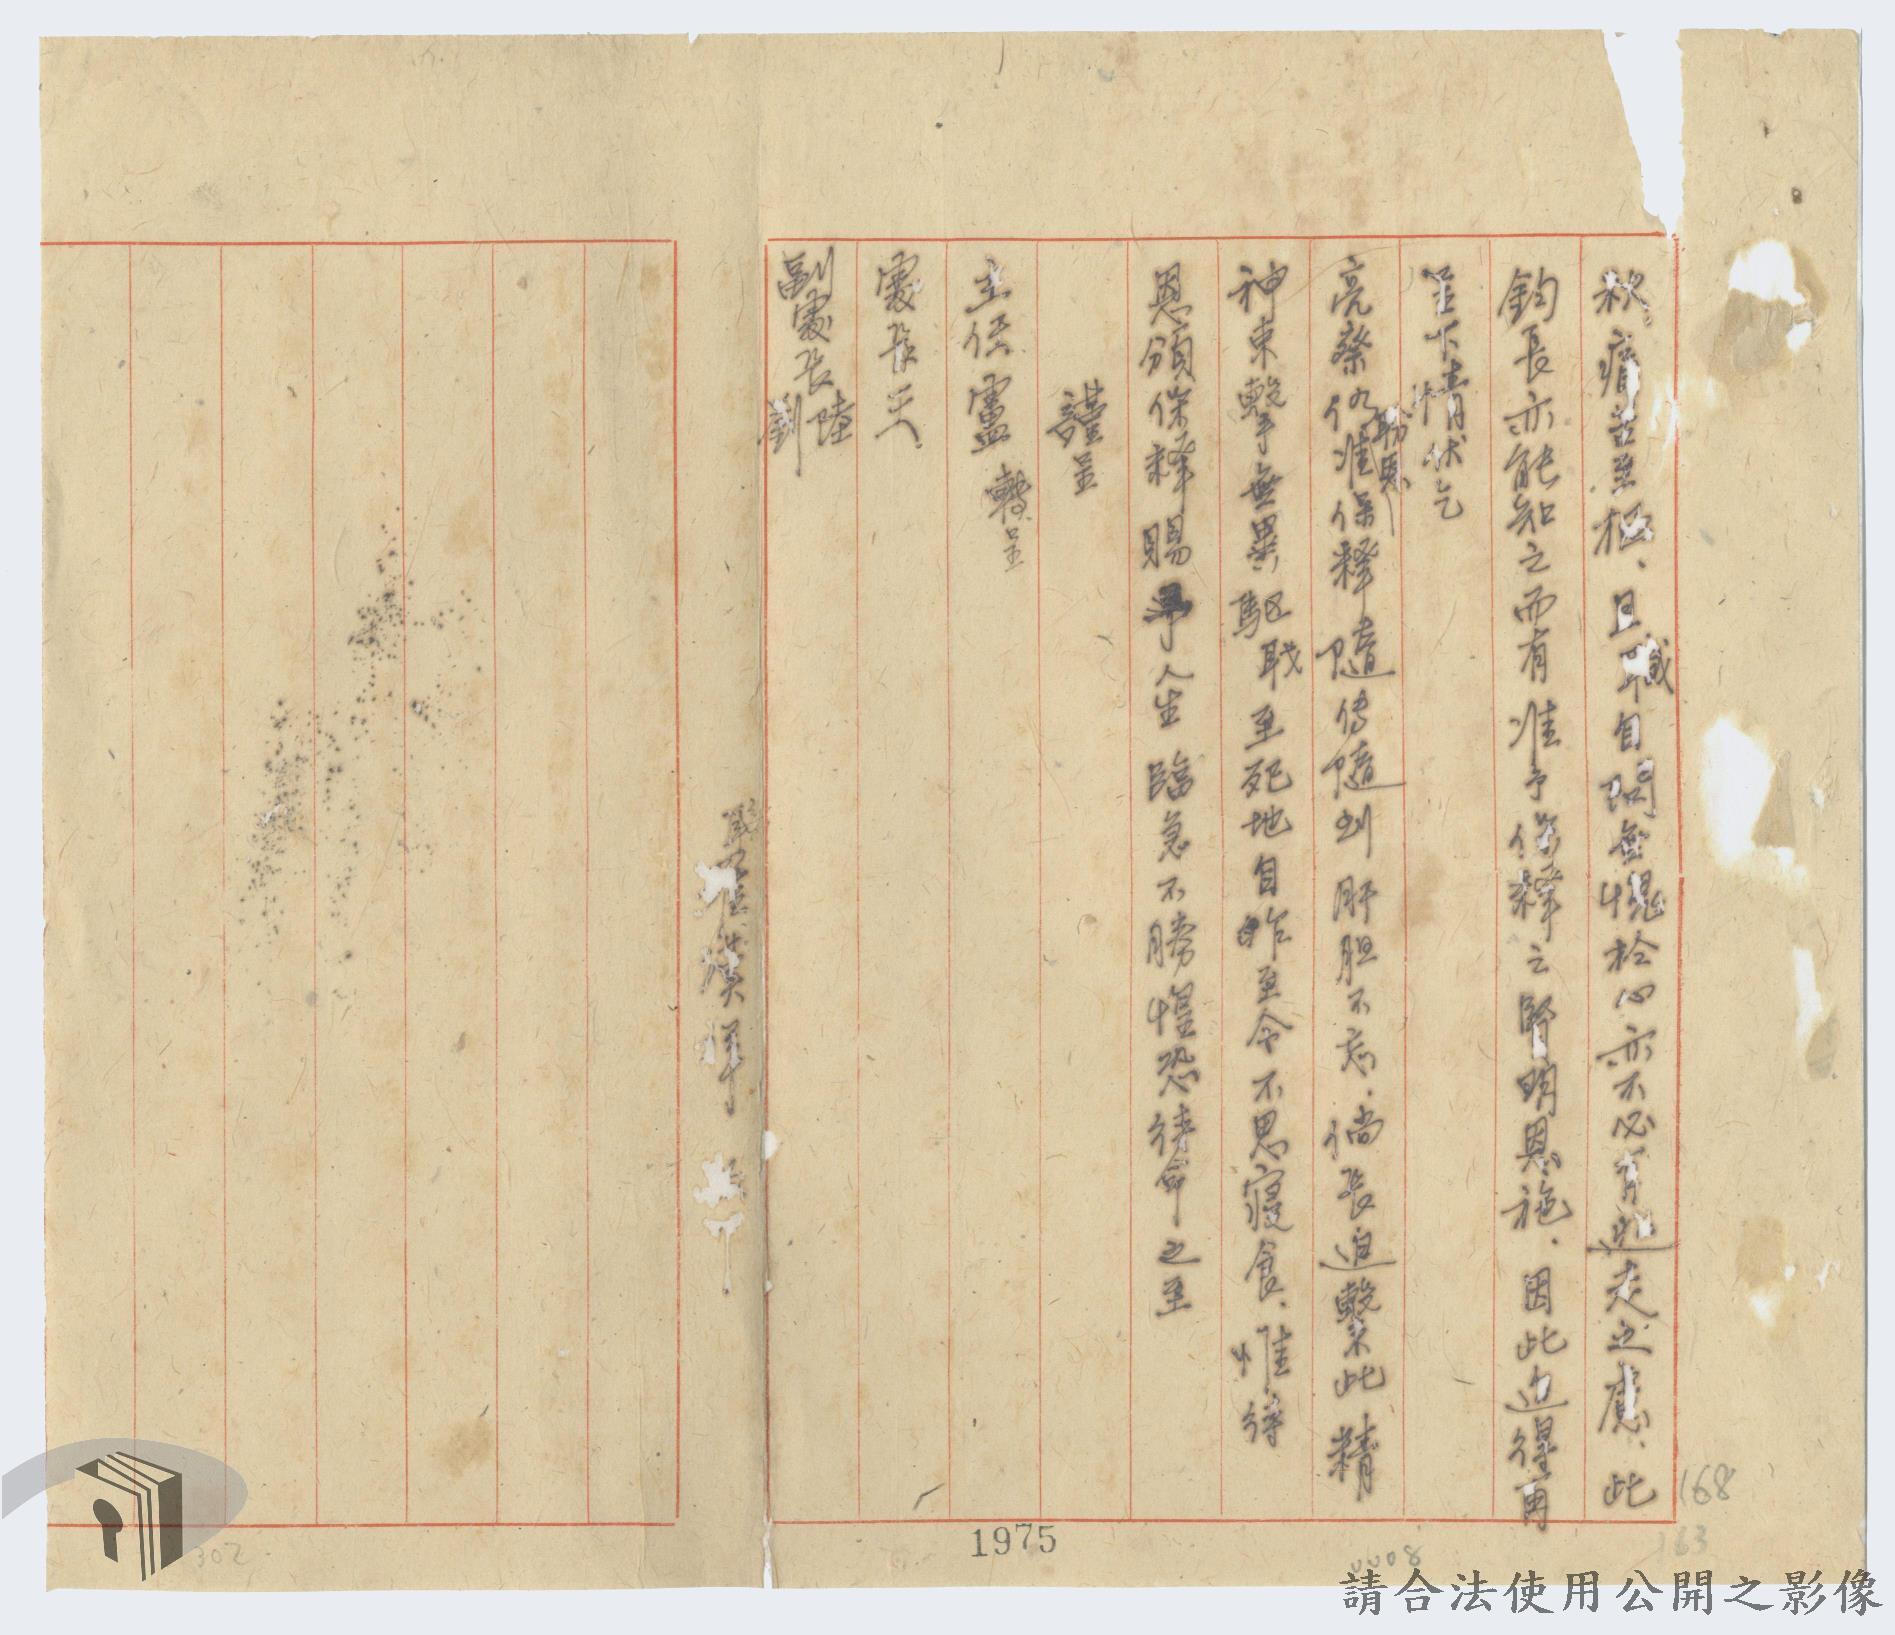 秋痛苦至極、且職自問無愧於心亦不必有逃走之慮、此
鈞長亦能知之而有准予保釋之賢明恩施、因此迫得再
呈下情伏乞
亮察俯准保釋隨傳隨到肝胆不忘、倘長迫繫此精
盼恩
神束擊無異驅職至死地自昨至今不思寢食、惟待
恩頒保釋賜予人生臨急不勝惶恐待命之至
謹呈
主任盧 轉呈
處長王
副處長陸
劉
職
漢
1975
168
163
2208
302
請合法使用公開之影像